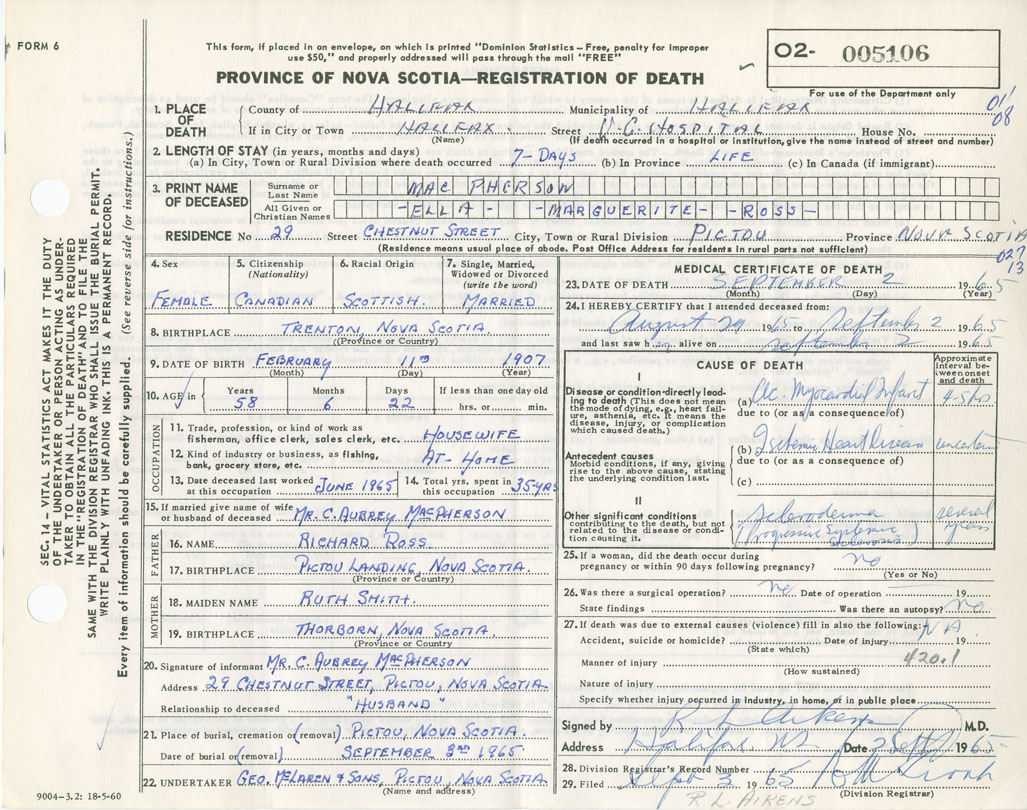 FORM 6
This form, if placed in an envelope, on which is printed "Dominion Statistics—Free, penalty for improper
use $50," and properly addressed will pass through the mail "FREE"
PROVINCE OF NOVA SCOTIA—REGISTRATION OF DEATH
O2- 005106
For use of the Department only
011
08
1. PLACE OF DEATH
County of HALIFAX Municipality of HALIFAX
If in City or Town HALIFAX. Street V.G. HOSPITAL House No.
(Name) (If death occurred in a hospital or institution, give the name instead of street and number)
2. LENGTH OF STAY (in years, months and days)
(a) In City, Town or Rural Division where death occurred 7-DAYS (b) In Province LIFE (c) In Canada (if immigrant)
3. PRINT NAME OF DECEASED
Surname or Last Name MAC PHERSON
All Given or Christian Names -ELLA- -MARGUERITE- -ROSS-
RESIDENCE No 29 Street CHESTNUT STREET City, Town or Rural Division PICTOU Province NOVA SCOTIA
(Residence means usual place of abode. Post Office Address for residents in rural parts not sufficient)
027
13
4. Sex FEMALE
5. Citizenship (Nationality) CANADIAN
6. Racial Origin SCOTTISH.
7. Single, Married, Widowed or Divorced (write the word) MARRIED
8. BIRTHPLACE TRENTON, NOVA SCOTIA
(Province or Country)
9. DATE OF BIRTH FEBRUARY 11TH 1907
(Month) (Day) (Year)
10. AGE in Years 58 Months 6 Days 22 If less than one day old hrs. or min.
OCCUPATION
11. Trade, profession, or kind of work as fisherman, office clerk, sales clerk, etc. HOUSEWIFE
12. Kind of industry or business, as fishing, bank, grocery store, etc. AT-HOME
13. Date deceased last worked at this occupation JUNE 1965
14. Total yrs. spent in this occupation 35-YRS
15. If married give name of wife or husband of deceased MR. C. AUBREY MACPHERSON
FATHER
16. NAME RICHARD ROSS
17. BIRTHPLACE PICTOU LANDING, NOVA SCOTIA.
(Province or Country)
MOTHER
18. MAIDEN NAME RUTH SMITH.
19. BIRTHPLACE THORBORN, NOVA SCOTIA.
(Province or Country)
20. Signature of informant MR. C. AUBREY MACPHERSON
Address 29 CHESTNUT STREET, PICTOU, NOVA SCOTIA
Relationship to deceased "HUSBAND"
21. Place of burial, cremation or (removal) PICTOU, NOVA SCOTIA.
Date of burial or (removal) SEPTEMBER 3RD 1965
22. UNDERTAKER GEO. MCLAREN & SONS, PICTOU, NOVA SCOTIA
(Name and address)
MEDICAL CERTIFICATE OF DEATH
23. DATE OF DEATH SEPTEMBER 2 1965
(Month) (Day) (Year)
24. I HEREBY CERTIFY that I attended deceased from:
August 29 1965 to September 2 1965
and last saw h er alive on September 2 1965
CAUSE OF DEATH
Approximate interval between onset and death
I
Disease or condition directly leading to death (This does not mean the mode of dying, e.g., heart failure, asthenia, etc. It means the disease, injury, or complication which caused death.)
(a) Ac. Myocardial Infarct 4-5 hrs
due to (or as a consequence of)
Antecedent causes
Morbid conditions, if any, giving rise to the above cause, stating the underlying condition last.
(b) Ischemic Heart Disease uncertain
due to (or as a consequence of)
(c)
II
Other significant conditions
contributing to the death, but not related to the disease or condition causing it.
Scleroderma several years
(Progressive Systemic
25. If a woman, did the death occur during pregnancy or within 90 days following pregnancy? no
(Yes or No)
26. Was there a surgical operation? no Date of operation 19
State findings Was there an autopsy? no
27. If death was due to external causes (violence) fill in also the following: NA
Accident, suicide or homicide? Date of injury 19
(State which)
420.1
Manner of injury
(How sustained)
Nature of injury
Specify whether injury occurred in industry, in home, or in public place
Signed by R. L. Aikens M.D.
Address Halifax, NS Date 2 Sept 1965
28. Division Registrar's Record Number
29. Filed Sept 3 1965
(Division Registrar)
R. L. AIKENS
SEC. 14 — VITAL STATISTICS ACT MAKES IT THE DUTY
OF THE UNDERTAKER OR PERSON ACTING AS UNDER-
TAKER TO OBTAIN ALL THE PARTICULARS REQUIRED
IN THE "REGISTRATION OF DEATH" AND TO FILE THE
SAME WITH THE DIVISION REGISTRAR WHO SHALL ISSUE THE BURIAL PERMIT.
WRITE PLAINLY WITH UNFADING INK. THIS IS A PERMANENT RECORD.
Every item of information should be carefully supplied. (See reverse side for instructions.)
9004-3.2: 18-5-60